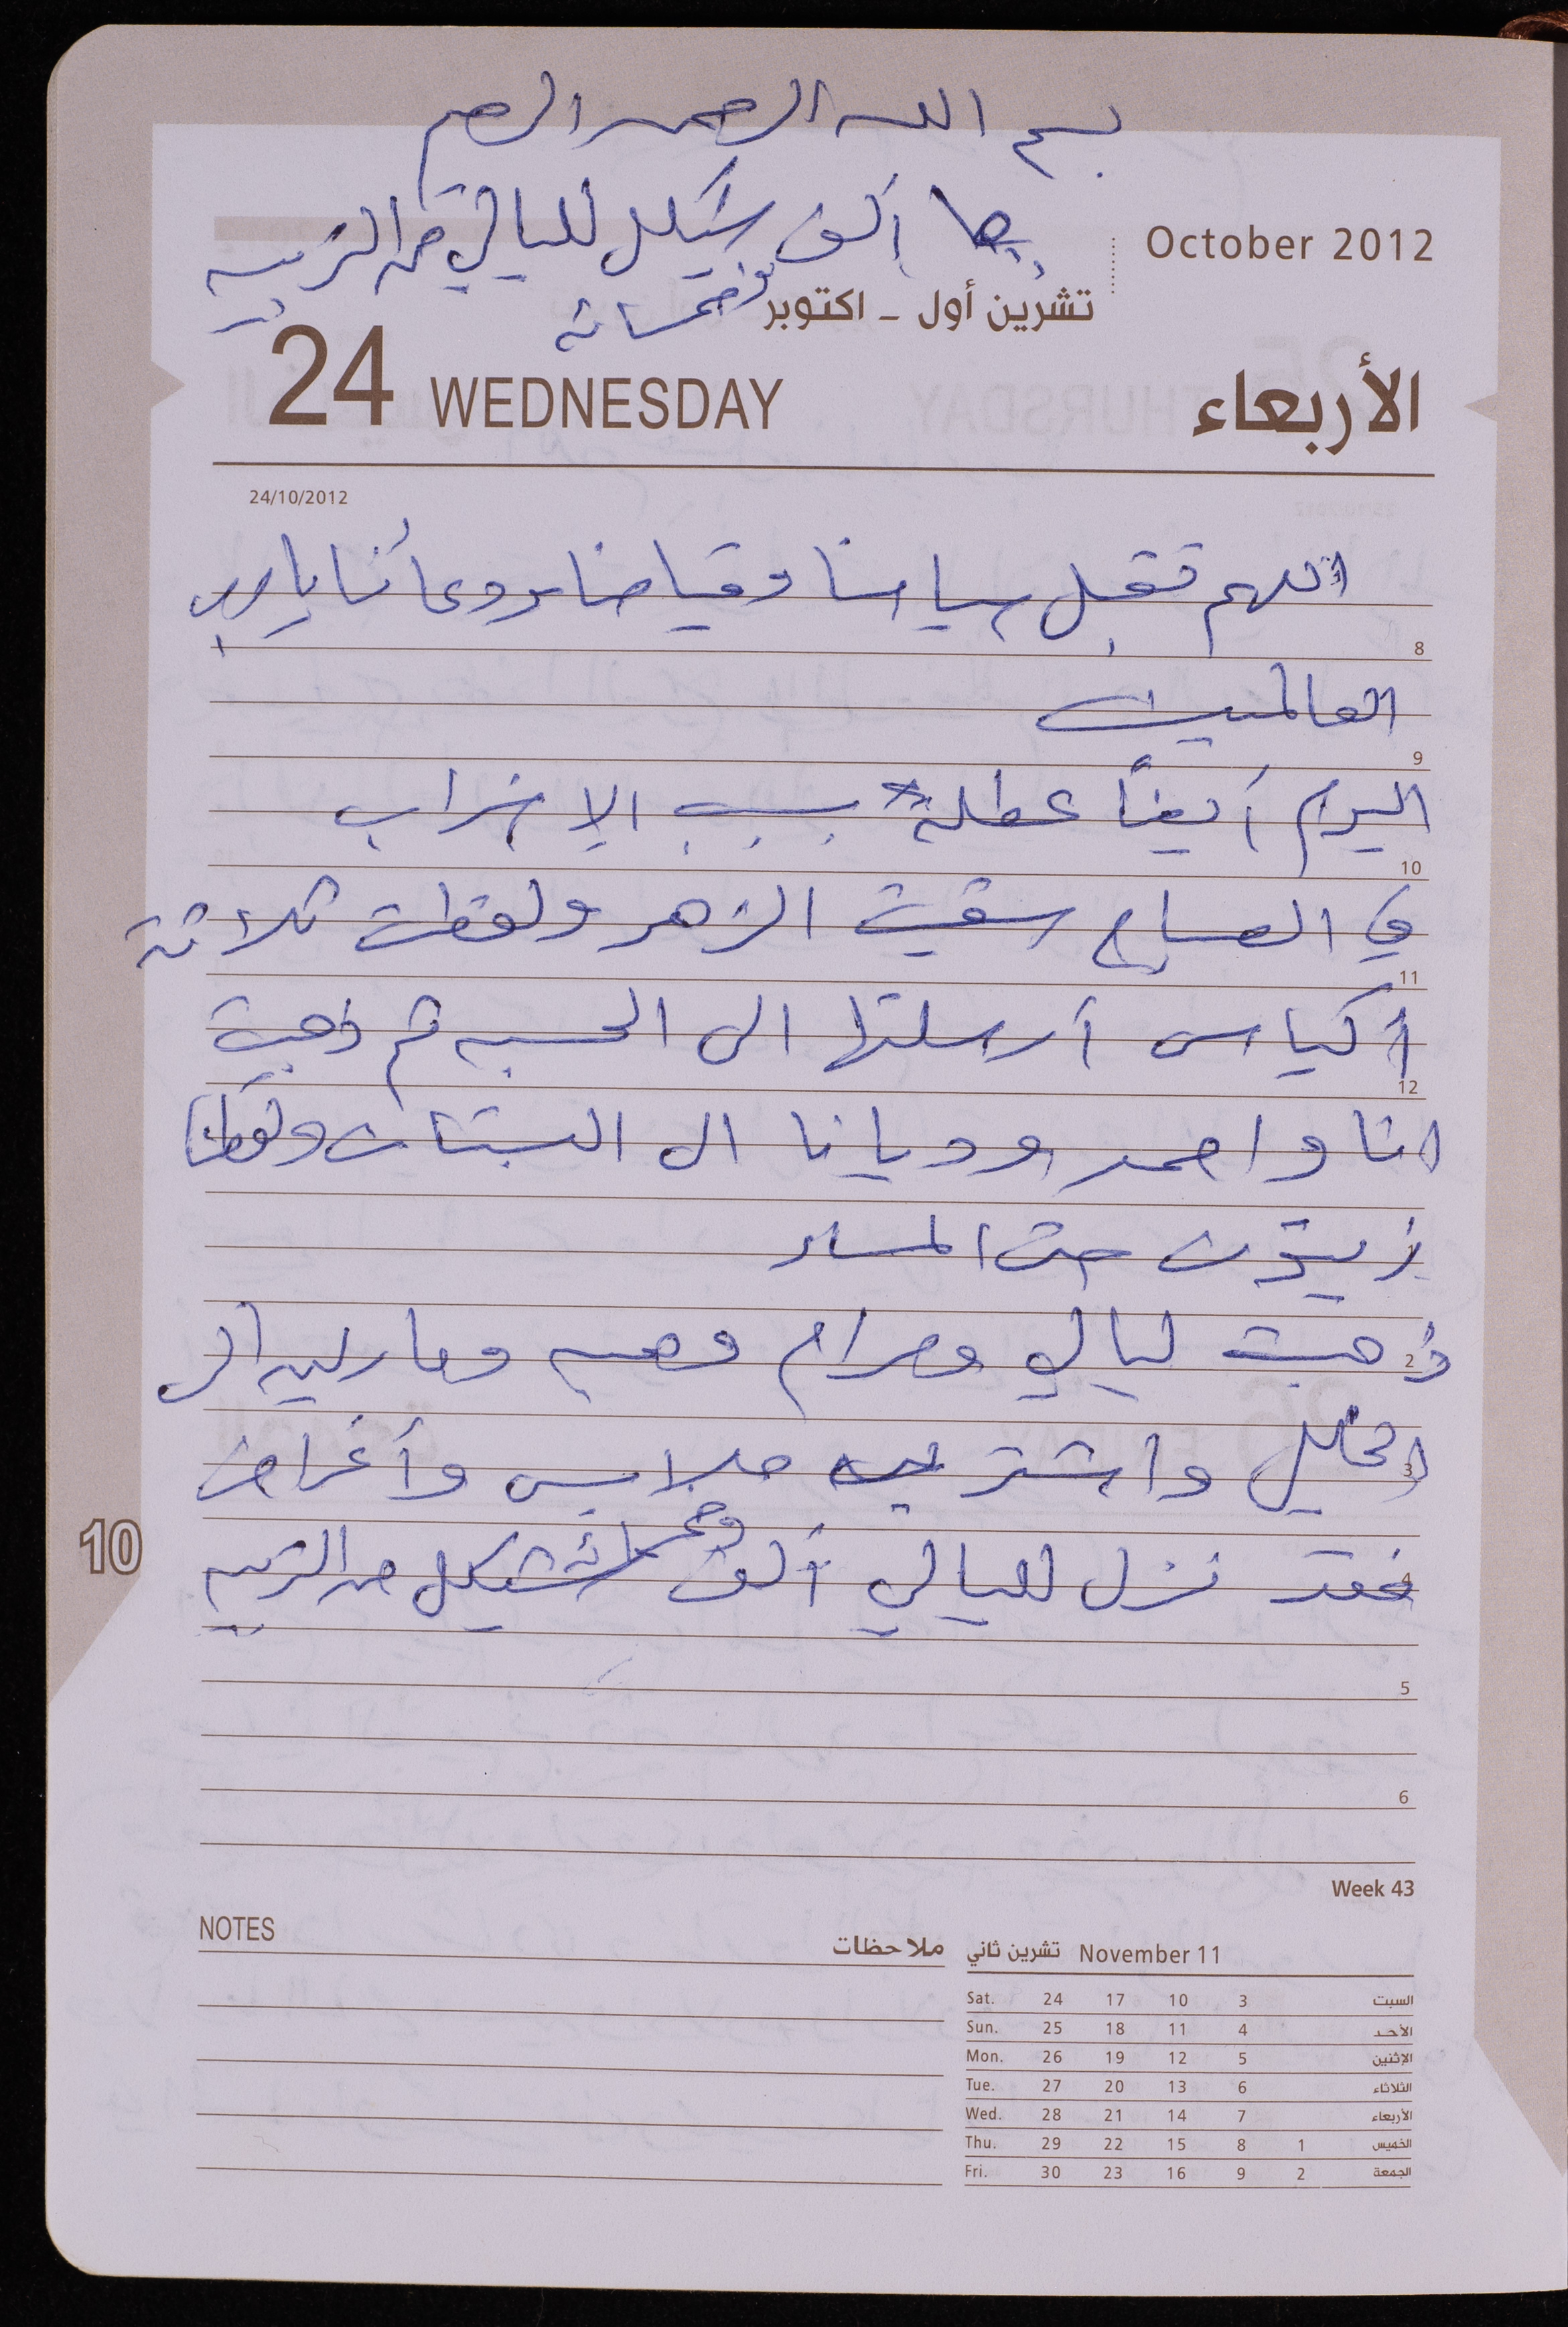 بسم الله الرحمن الرحيم
October 2012
ألف شيكل لليالي من التربيه
وخمسمائة
تشرين أول - اكتوبر
24 WEDNESDAY الأربعاء
24/10/2012
اللهم تقبل صيامنا وقيامنا ودعأنا يا رب
8
العالمين
9
اليوم أيضاً عطلة بسبب الإضراب
10
في الصباح سقيت الزهر ولقطت ثلاثة
11
أكياس أرسلتها الى الحسبه ثم ذهبت
12
انا واحمد وديانا الى البستان ولقطنا
زيتون حتى المساء
ذهبت ليالي ومرام وهبه وماريه الى
2
الخليل واشترت ملابس وأغراض
3
فقد نزل لليالي ألف وخمسمائة شيكل من التربيه
4
10
5
6
Week 43
NOTES ملاحظات
November 11 تشرين ثاني
Sat. 24 17 10 3 السبت
Sun. 25 18 11 4 الأحد
Mon. 26 19 12 5 الإثنين
Tue. 27 20 13 6 الثلاثاء
Wed. 28 21 14 7 الأربعاء
Thu. 29 22 15 8 1 الخميس
Fri. 30 23 16 9 2 الجمعة